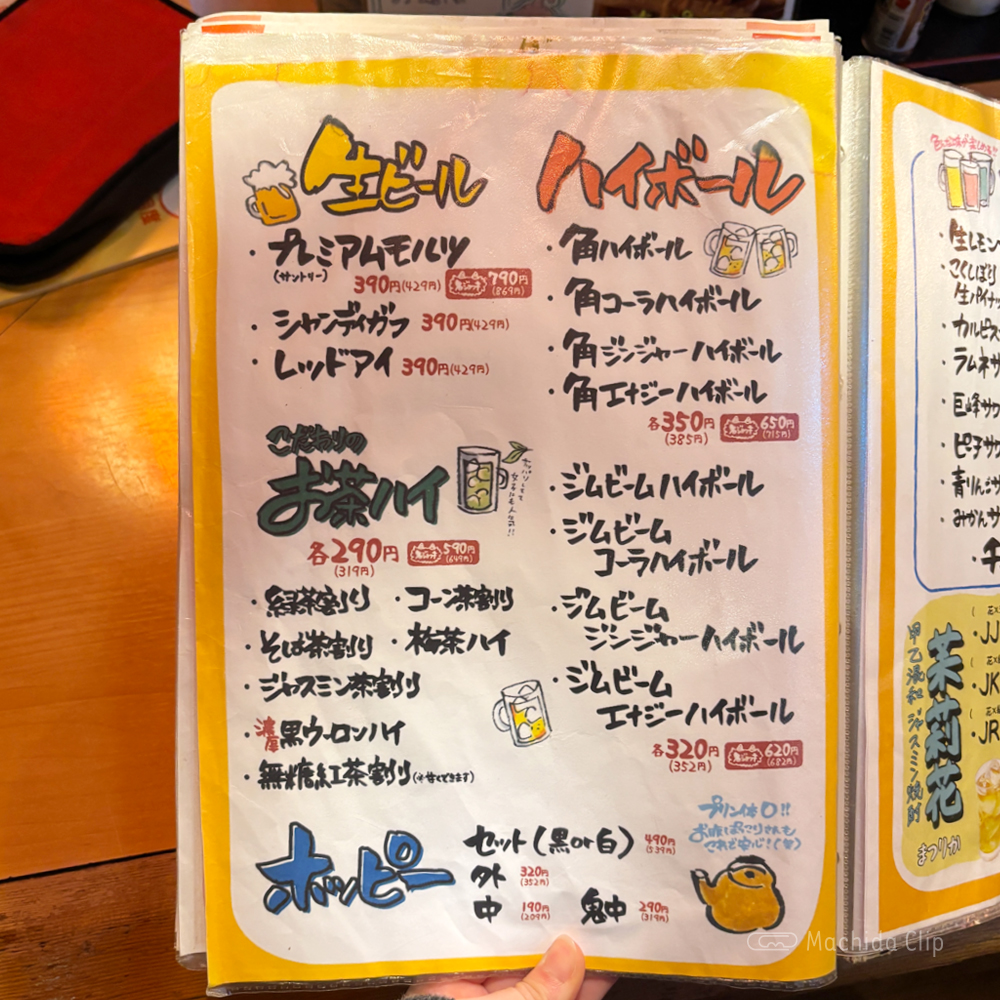 生ビール
・プレミアムモルツ
(サントリー)
390円(429円)
790円
(869円)
・シャンディガフ 390円(429円)
・レッドアイ 390円(429円)
こだわりの
お茶ハイ
さっぱりしてて
女子にも人気!!
各290円
(319円)
590円
(649円)
・緑茶割り ・コーン茶割り
・そば茶割り ・梅茶ハイ
・ジャスミン茶割り
・濃厚黒ウーロンハイ
・無糖紅茶割り(※甘くできます)
ハイボール
・角ハイボール
・角コーラハイボール
・角ジンジャーハイボール
・角エナジーハイボール
各350円
(385円)
650円
(715円)
・ジムビームハイボール
・ジムビーム
コーラハイボール
・ジムビーム
ジンジャーハイボール
・ジムビーム
エナジーハイボール
各320円
(352円)
620円
(682円)
ホッピー
セット(黒or白) 490円
(539円)
外 320円
(352円)
中 190円
(209円)
鬼中 290円
(319円)
プリン体0!!
・生レモン
・こくしぼり
生パイナッ
・カルピス
・ラムネサ
・巨峰サワ
・ピーチサワ
・青りんごサ
・みかんサ
甲乙混和 ジャスミン焼酎
茉莉花
まつりか
・JJ
・JK
・JR
Machida Clip